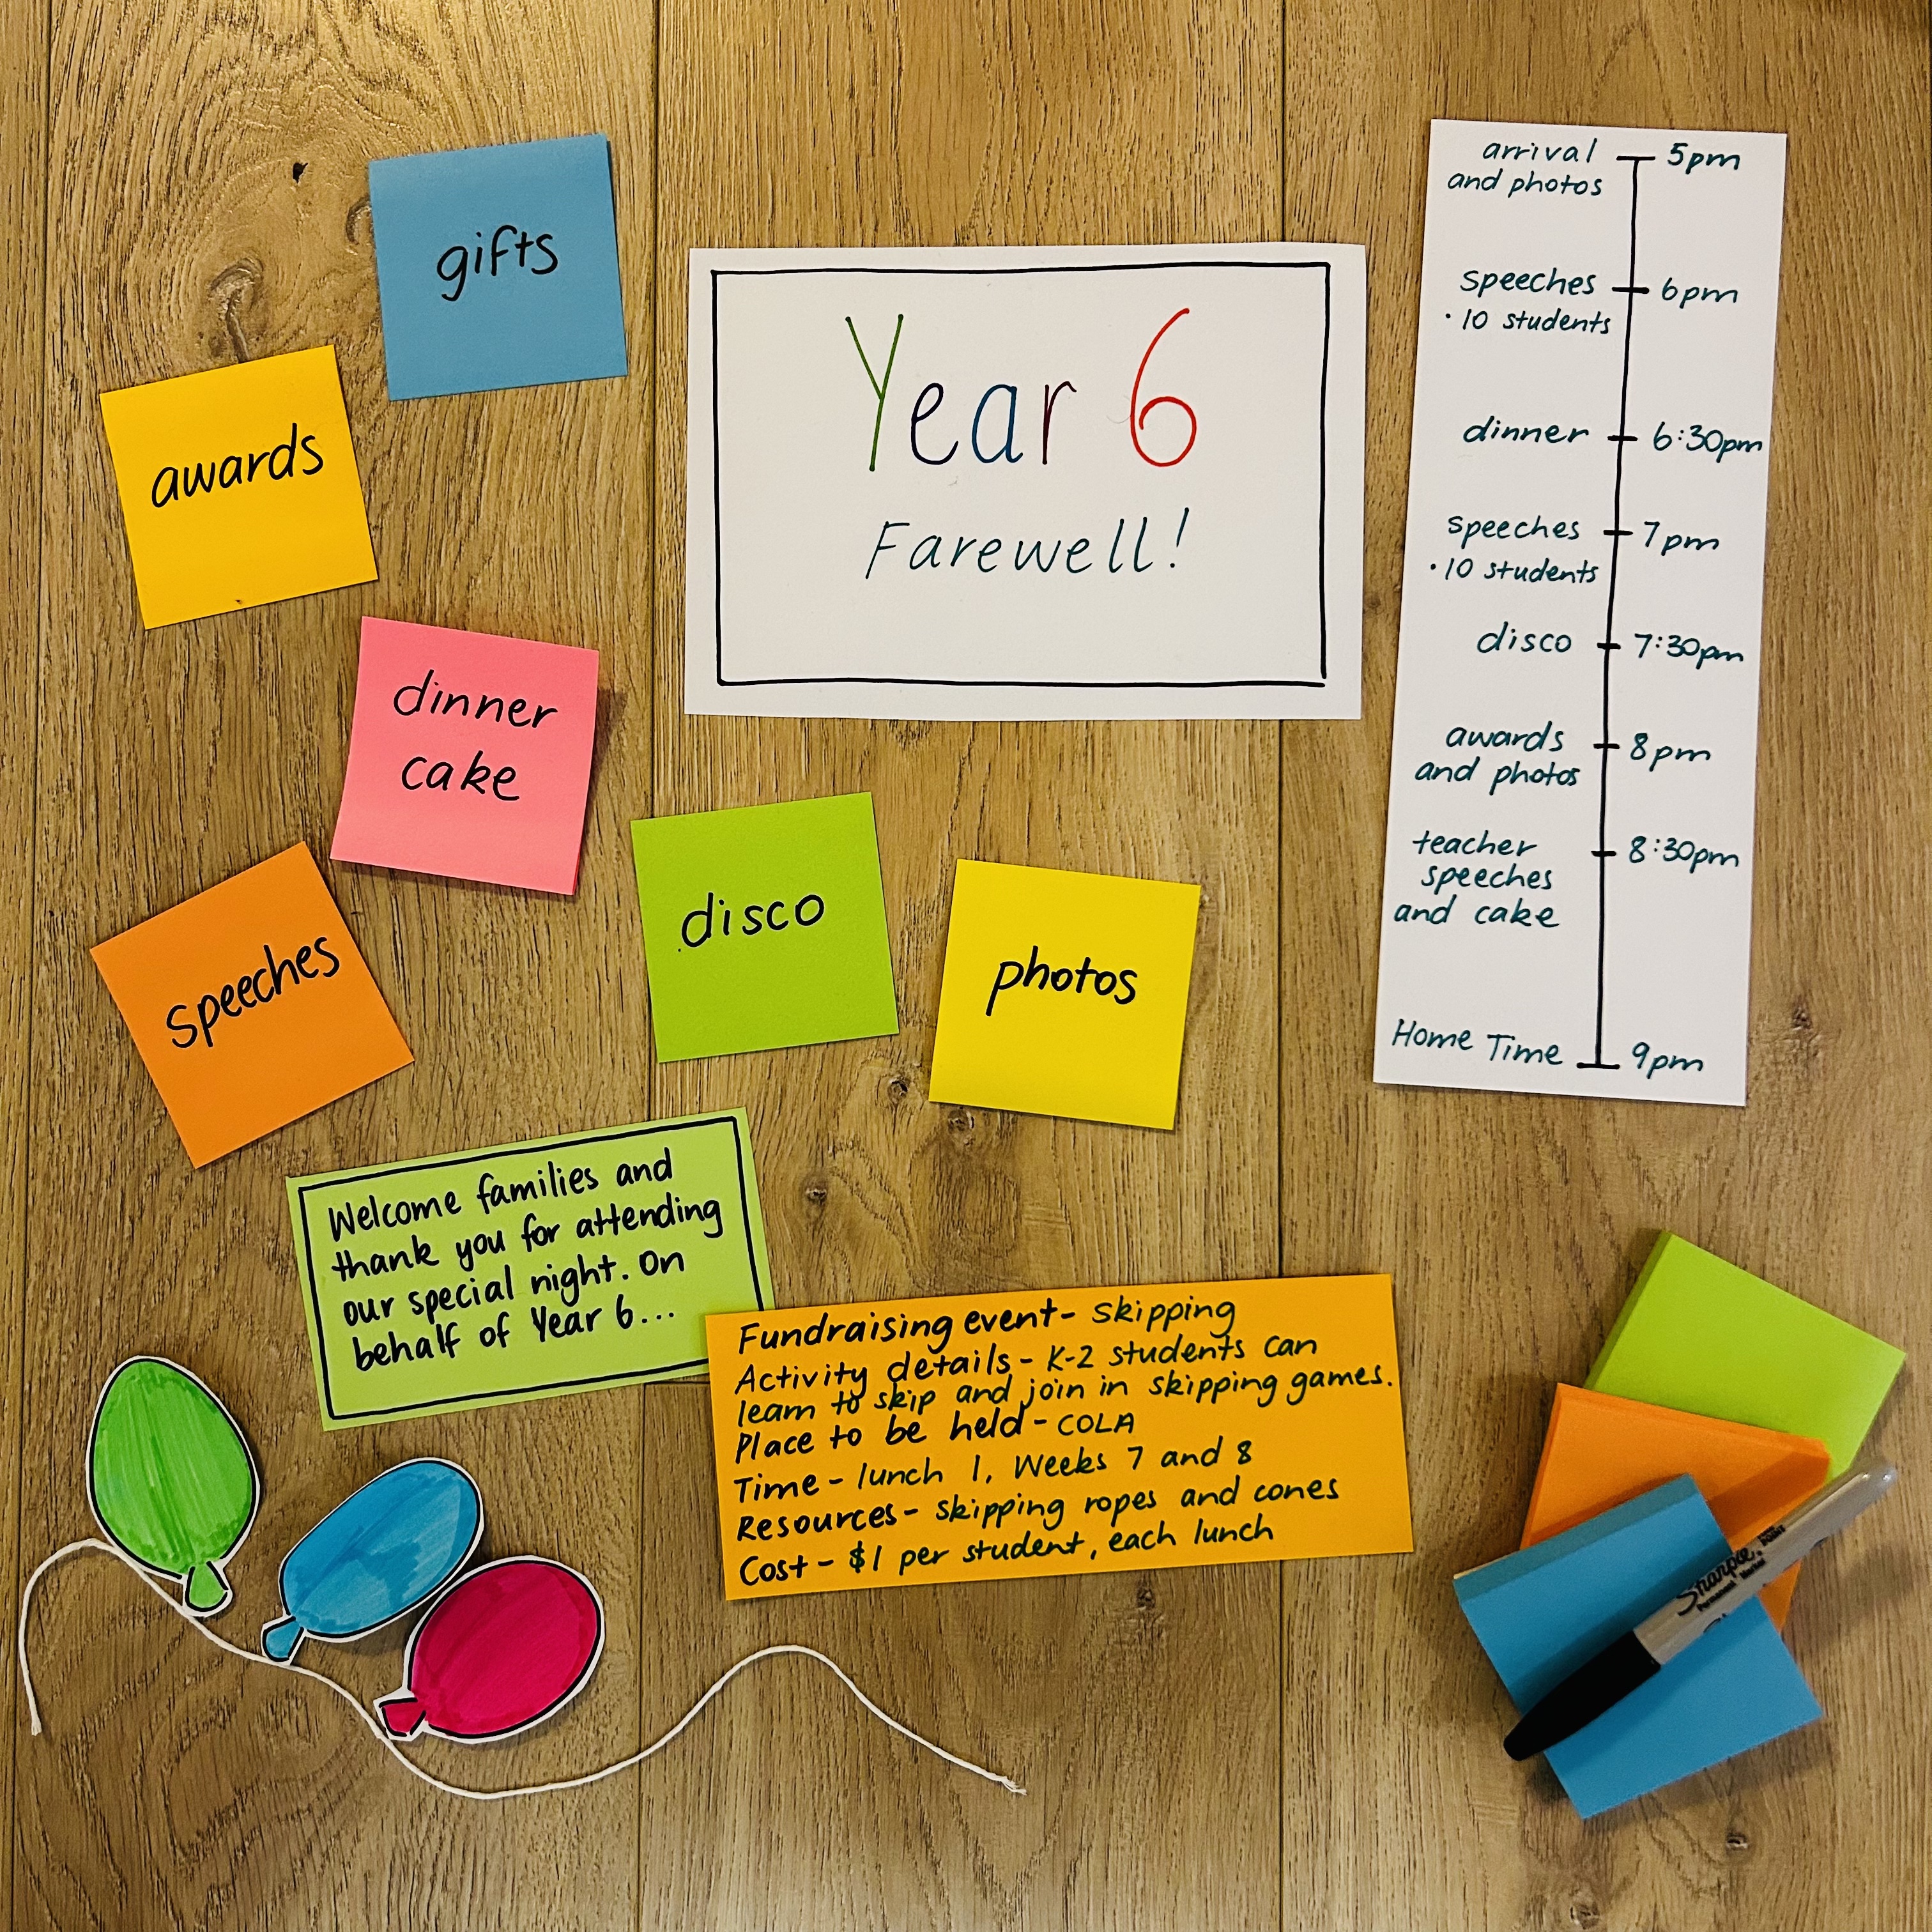 gifts
awards
dinner
cake
speeches
disco
photos
Year 6
Farewell!
arrival
and photos
5pm
speeches
• 10 students
6pm
dinner
6:30pm
speeches
• 10 students
7pm
disco
7:30pm
awards
and photos
8pm
teacher
speeches
and cake
8:30pm
Home Time
9pm
Welcome families and
thank you for attending
our special night. On
behalf of Year 6...
Fundraising event- skipping
Activity details - K-2 students can
learn to skip and join in skipping games.
Place to be held - COLA
Time - lunch 1, Weeks 7 and 8
Resources - skipping ropes and cones
Cost - $1 per student, each lunch
Sharpie
Permanent Marker